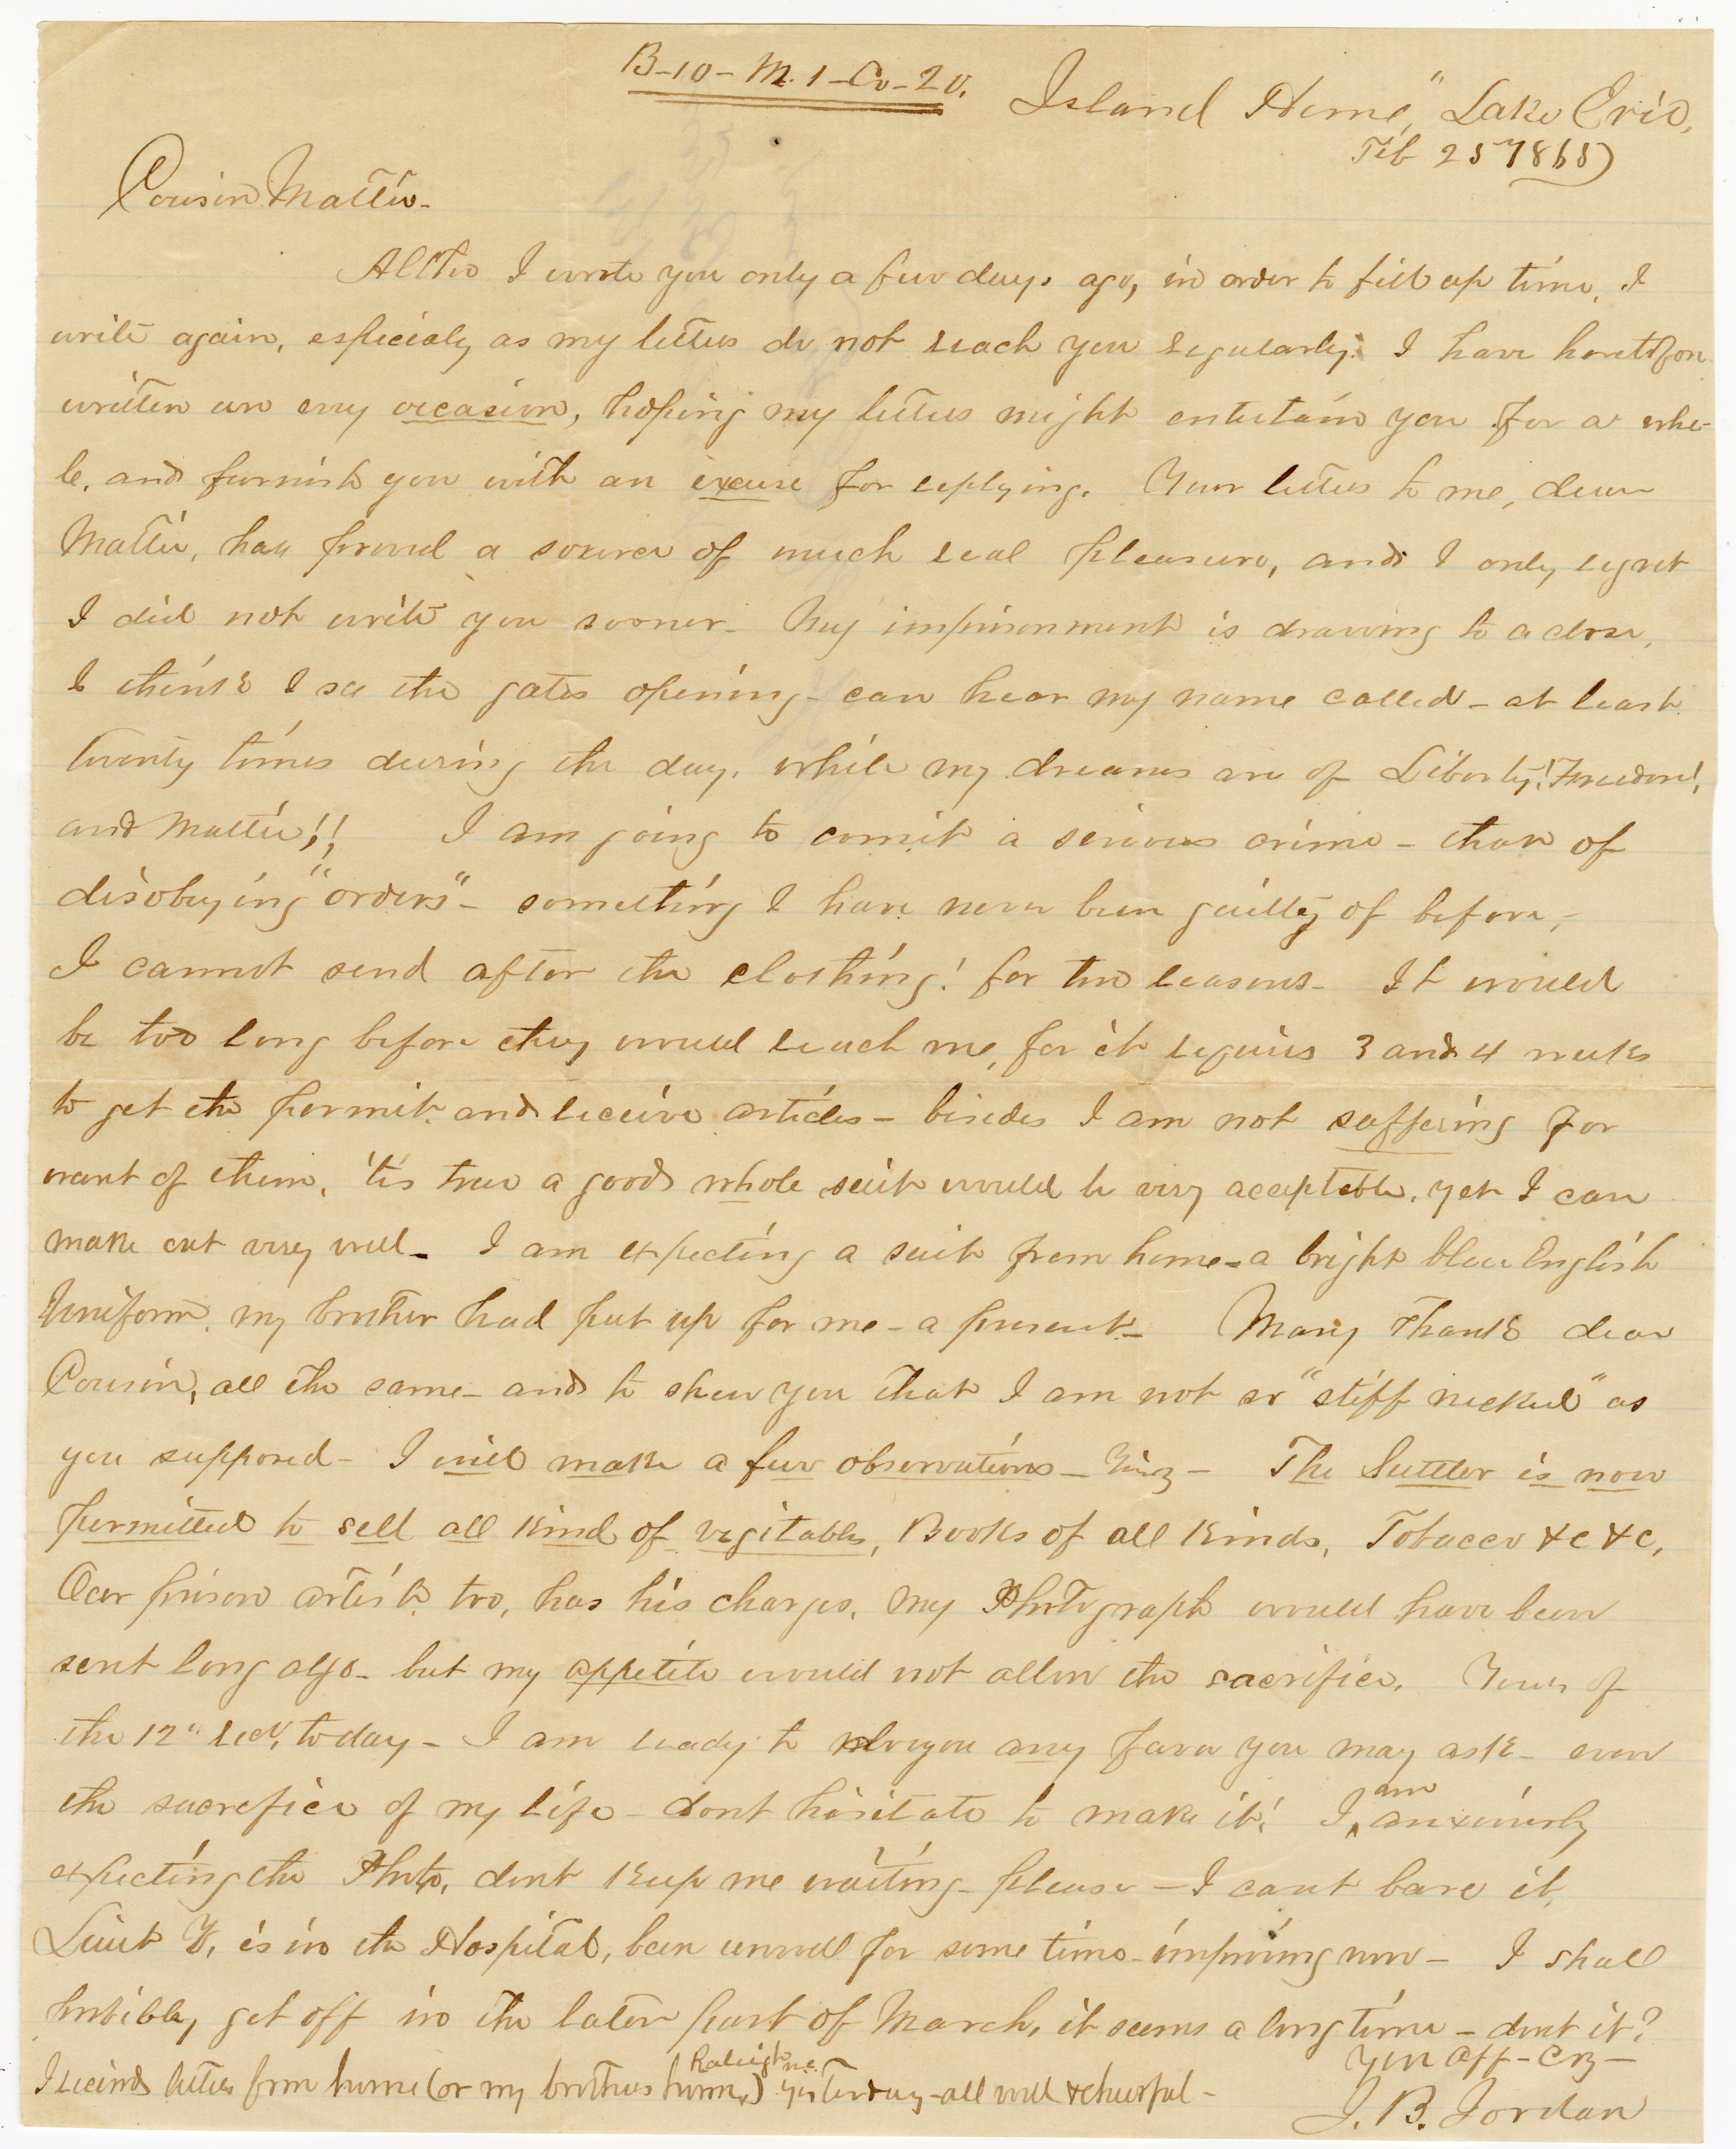 B-10-M.1-Co-20.
Island Home," Lake Erie,
Feb 25 1865
Cousin Mattie-
Altho I wrote you only a few days ago, in order to fill up time, I
write again, especialy as my letters do not reach you regularly. I have heretofore
written on evry occasion, hoping my letters might entertain you for a whi-
le, and furnish you with an excuse for replying. Your letters to me, dear
Mattie, has proved a source of much real pleasure, and I only regret
I did not write you sooner- My imprisonment is drawing to a close,
I think I see the gates opening- can hear my name called- at least
twenty times during the day, while my dreams are of Liberty! Freedom!,
and Mattie!! I am going to comit a serious crime- that of
disobeying "orders"- something I have never been guilty of before,-
I cannot send after the clothing! for two reasons- It would
be too long before they would reach me, for it requires 3 and 4 weeks
to get the permit and receive articles- besides I am not suffering for
want of them, 'tis true a good whole suit would be very acceptable, yet I can
make out very well- I am expecting a suit from home- a bright blue English
Uniform, my brother had put up for me- a present- Many Thanks dear
Cousin, all the same- and to shew you that I am not so "stiff necked" as
you supposed- I will make a few observations- Viz- The Suttler is now
permitted to sell all kind of vegitables, Books of all kinds, Tobacco &c &c,
Our prison artist too, has his charges, My Photograph would have been
sent long ago- but my appetite would not allow the sacrifice. Yours of
the 12" recd, today- I am ready to you any favor you may ask- even
the sacrefice of my life- dont hesitate to make it! I am anxiously
expecting the Photo, dont keep me waiting- please- I cant bare it,
Lieut Y, is in the Hospital, been unwell for some time- improving now- I shall
probibly get off in the later part of March, it seems a long time- dont it?
Your Aff- Coz-
I recieved letters from home (or my brothers home, Raleigh N.C.) yesterday- all well & cheerful-
J. B. Jordan